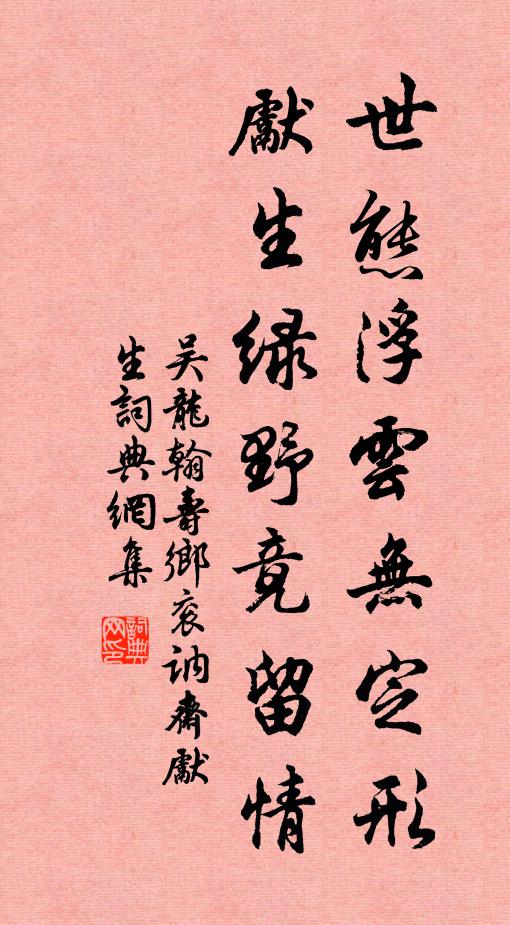 世態浮雲無定形
獻生緑野竟留情
吴龍翰壽鄉衮訥齊獻
生詞典網集
詞典
网印